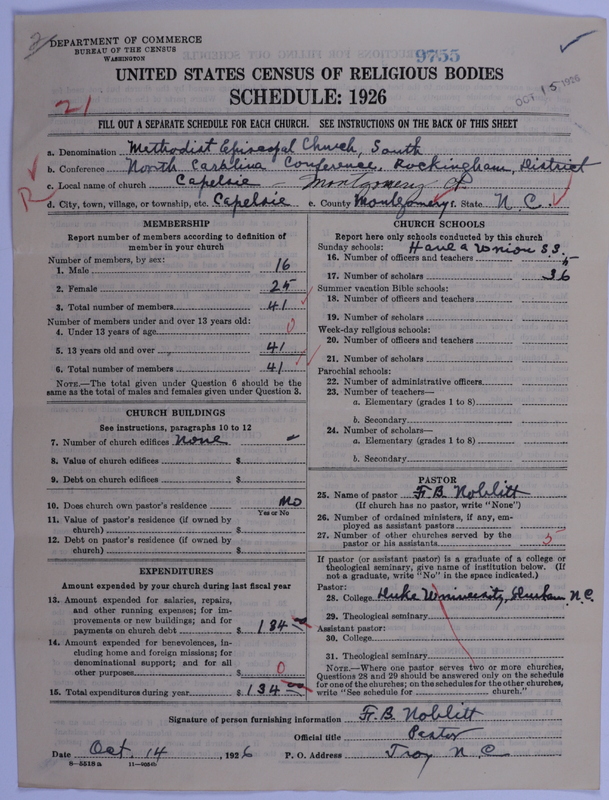 2
DEPARTMENT OF COMMERCE
BUREAU OF THE CENSUS
WASHINGTON
9755
UNITED STATES CENSUS OF RELIGIOUS BODIES
SCHEDULE: 1926
OCT 15 1926
21
FILL OUT A SEPARATE SCHEDULE FOR EACH CHURCH. SEE INSTRUCTIONS ON THE BACK OF THIS SHEET
a. Denomination Methodist Episcopal Church, South
b. Conference North Carolina Conference, Rockingham, District
c. Local name of church Capelsie - Montgomery
R
d. City, town, village, or township, etc. Capelsie e. County Montgomery f. State N.C.
MEMBERSHIP
Report number of members according to definition of
member in your church
Number of members, by sex:
1. Male 16
2. Female 25
3. Total number of members 41
Number of members under and over 13 years old:
4. Under 13 years of age 0
5. 13 years old and over 41
6. Total number of members 41
NOTE.—The total given under Question 6 should be the
same as the total of males and females given under Question 3.
CHURCH BUILDINGS
See instructions, paragraphs 10 to 12
7. Number of church edifices None
8. Value of church edifices $
9. Debt on church edifices $
10. Does church own pastor's residence No
Yes or No
11. Value of pastor's residence (if owned by
church) $
12. Debt on pastor's residence (if owned by
church) $
EXPENDITURES
Amount expended by your church during last fiscal year
13. Amount expended for salaries, repairs,
and other running expenses; for im-
provements or new buildings; and for
payments on church debt $ 134 00
14. Amount expended for benevolences, in-
cluding home and foreign missions; for
denominational support; and for all
other purposes $ 0
15. Total expenditures during year $ 134 00
CHURCH SCHOOLS
Report here only schools conducted by this church
Sunday schools: Have a Union S.S.
16. Number of officers and teachers 5
17. Number of scholars 36
Summer vacation Bible schools:
18. Number of officers and teachers
19. Number of scholars
Week-day religious schools:
20. Number of officers and teachers
21. Number of scholars
Parochial schools:
22. Number of administrative officers
23. Number of teachers—
a. Elementary (grades 1 to 8)
b. Secondary
24. Number of scholars—
a. Elementary (grades 1 to 8)
b. Secondary
PASTOR
25. Name of pastor F. B. Noblitt
(If church has no pastor, write "None")
26. Number of ordained ministers, if any, em-
ployed as assistant pastors
27. Number of other churches served by the
pastor or his assistants 5
If pastor (or assistant pastor) is a graduate of a college or
theological seminary, give name of institution below. (If
not a graduate, write "No" in the space indicated.)
Pastor:
28. College Duke University, Durham N.C.
29. Theological seminary
Assistant pastor:
30. College
31. Theological seminary
NOTE.—Where one pastor serves two or more churches,
Questions 28 and 29 should be answered only on the schedule
for one of the churches; on the schedules for the other churches,
write "See schedule for church."
Signature of person furnishing information F. B. Noblitt
Official title Pastor
Date Oct. 14, 1926 P. O. Address Troy N C
8—5518a